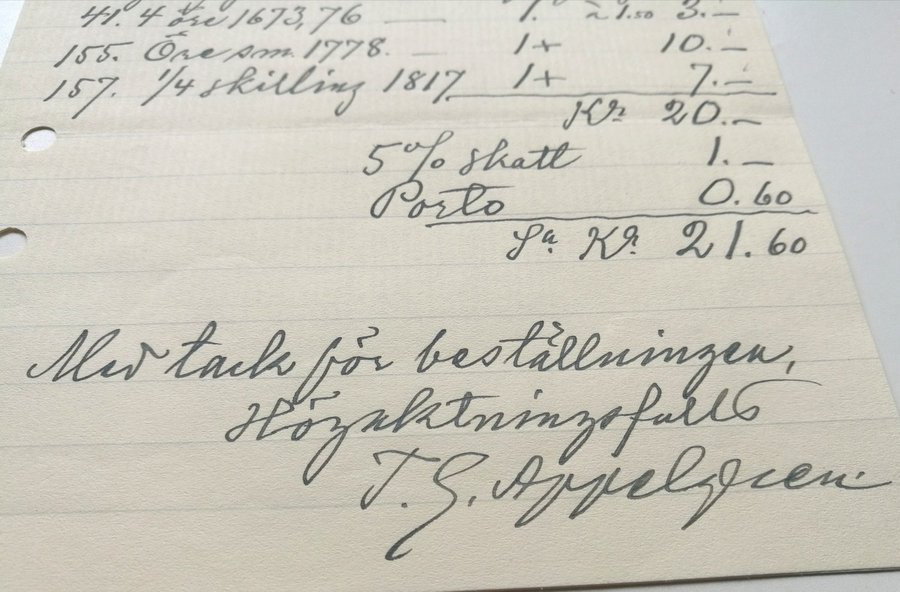 41. 4 öre 1673, 76 — 1. à 1.50 3.—
155. Öre sm. 1778. — 1+ 10.—
157. 1/4 skilling 1817 1+ 7.—
Kr. 20.—
5% skatt 1.—
Porto 0.60
Sa. Kr. 21.60
Med tack för beställningen,
Högaktningsfullt
T. G. Appelgren.